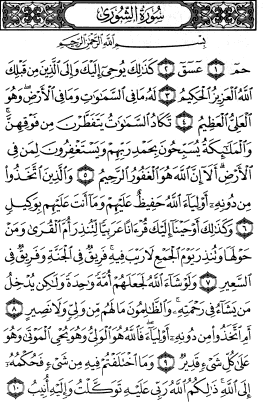 سُورَةُ الشُّورَىٰ
بِسْمِ اللَّهِ الرَّحْمَٰنِ الرَّحِيمِ
حمٓ ١ عٓسٓقٓ ٢ كَذَٰلِكَ يُوحِيٓ إِلَيْكَ وَإِلَى الَّذِينَ مِن قَبْلِكَ
اللَّهُ الْعَزِيزُ الْحَكِيمُ ٣ لَهُۥ مَا فِي السَّمَٰوَٰتِ وَمَا فِي الْأَرْضِ ۖ وَهُوَ
الْعَلِيُّ الْعَظِيمُ ٤ تَكَادُ السَّمَٰوَٰتُ يَتَفَطَّرْنَ مِن فَوْقِهِنَّ ۚ
وَالْمَلَٰٓئِكَةُ يُسَبِّحُونَ بِحَمْدِ رَبِّهِمْ وَيَسْتَغْفِرُونَ لِمَن فِي
الْأَرْضِ ۗ أَلَآ إِنَّ اللَّهَ هُوَ الْغَفُورُ الرَّحِيمُ ٥ وَالَّذِينَ اتَّخَذُوا۟
مِن دُونِهِۦٓ أَوْلِيَآءَ اللَّهُ حَفِيظٌ عَلَيْهِمْ وَمَآ أَنتَ عَلَيْهِم بِوَكِيلٍ
٦ وَكَذَٰلِكَ أَوْحَيْنَآ إِلَيْكَ قُرْءَانًا عَرَبِيًّا لِّتُنذِرَ أُمَّ الْقُرَىٰ وَمَنْ
حَوْلَهَا وَتُنذِرَ يَوْمَ الْجَمْعِ لَا رَيْبَ فِيهِ ۚ فَرِيقٌ فِي الْجَنَّةِ وَفَرِيقٌ فِي
السَّعِيرِ ٧ وَلَوْ شَآءَ اللَّهُ لَجَعَلَهُمْ أُمَّةً وَٰحِدَةً وَلَٰكِن يُدْخِلُ
مَن يَشَآءُ فِي رَحْمَتِهِۦ ۚ وَالظَّٰلِمُونَ مَا لَهُم مِّن وَلِيٍّ وَلَا نَصِيرٍ ٨
أَمِ اتَّخَذُوا۟ مِن دُونِهِۦٓ أَوْلِيَآءَ ۖ فَاللَّهُ هُوَ الْوَلِيُّ وَهُوَ يُحْيِ الْمَوْتَىٰ وَهُوَ
عَلَىٰ كُلِّ شَيْءٍ قَدِيرٌ ٩ وَمَا اخْتَلَفْتُمْ فِيهِ مِن شَيْءٍ فَحُكْمُهُۥٓ
إِلَى اللَّهِ ۚ ذَٰلِكُمُ اللَّهُ رَبِّي عَلَيْهِ تَوَكَّلْتُ وَإِلَيْهِ أُنِيبُ ١٠